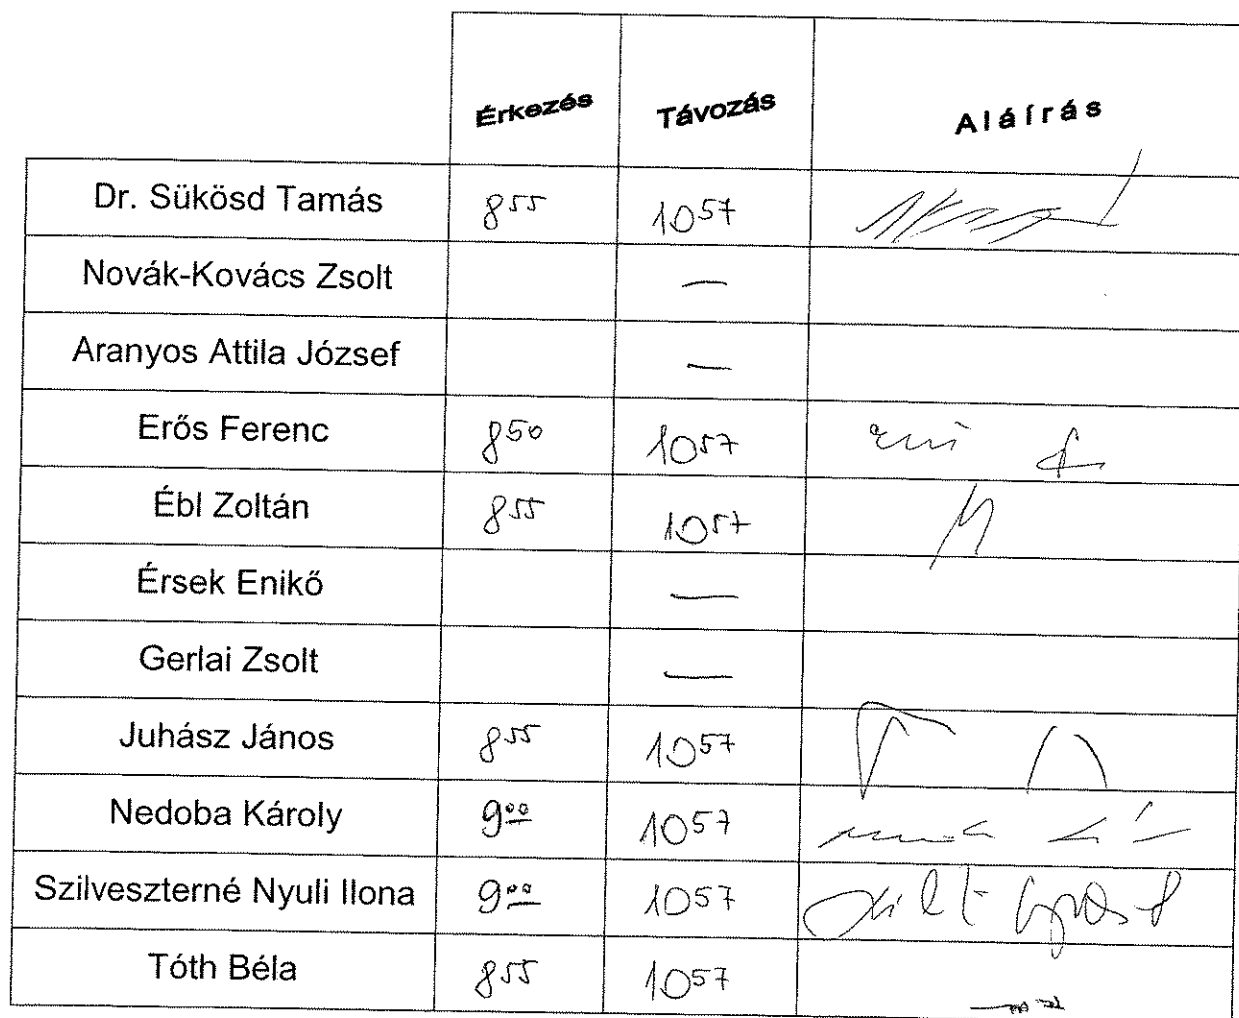 Érkezés Távozás Aláírás
Dr. Sükösd Tamás 8⁵⁵ 10⁵⁷
Novák-Kovács Zsolt —
Aranyos Attila József —
Erős Ferenc 8⁵⁰ 10⁵⁷
Ébl Zoltán 8⁵⁵ 10⁵⁷
Érsek Enikő —
Gerlai Zsolt —
Juhász János 8⁵⁵ 10⁵⁷
Nedoba Károly 9⁰⁰ 10⁵⁷
Szilveszterné Nyuli Ilona 9⁰⁰ 10⁵⁷
Tóth Béla 8⁵⁵ 10⁵⁷